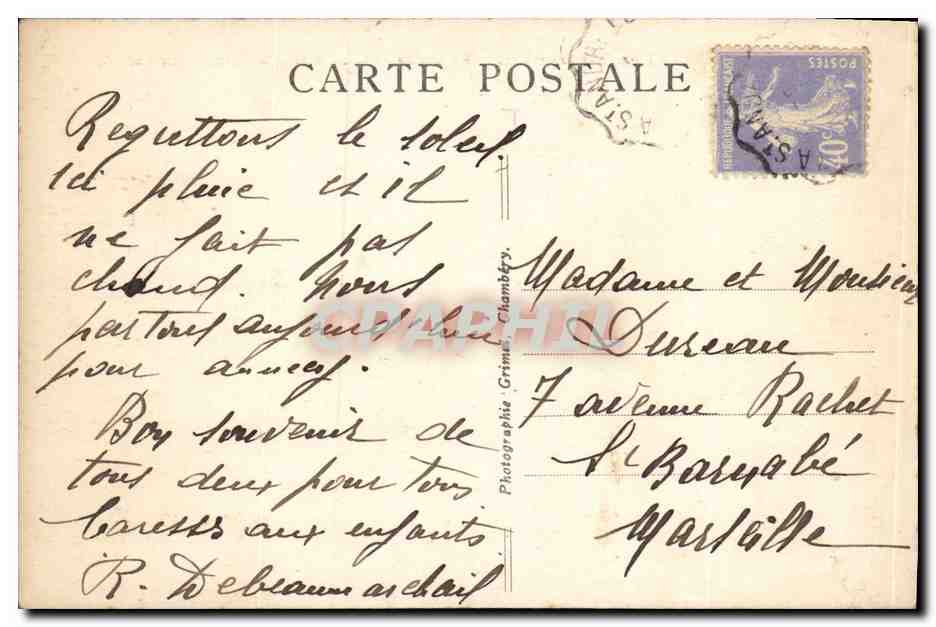 CARTE POSTALE
Regrettons le soleil.
Ici pluie et il
ne fait pas
chaud. Nous
partons aujourd'hui
pour annecy.
Bon souvenir de
tous deux pour tous
Caresses aux enfants
R.
Photographie Grimal, Chambéry.
Madame et Monsieur
Dureau
7 avenue Rachet
St Barnabé
Marseille
REPUBLIQUE FRANÇAISE
POSTES
40c
A ST. ANDR
A ST. AND
CPAPHIL